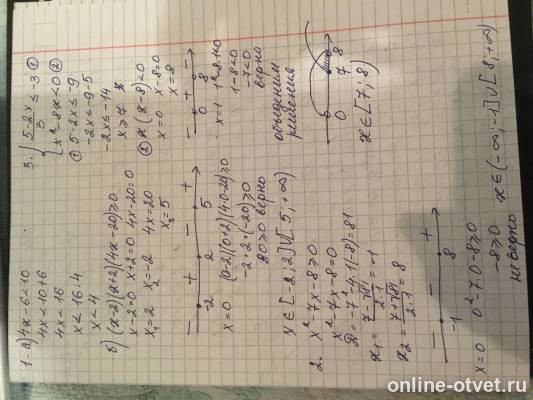 1. а) 4x - 6 < 10
4x < 10 + 6
4x < 16
x < 16 : 4
x < 4
б) (x-2)(x+2)(4x-20) ≥ 0
x-2=0 x+2=0 4x-20=0
x₁=2 x₂=-2 4x=20
x₃=5
- + - +
-2 2 5
x=0 (0-2)(0+2)(4·0-20) ≥ 0
-2·2·(-20) ≥ 0
80 ≥ 0 верно
x ∈ [-2; 2] ∪ [5; +∞)
2. x²-7x-8 ≥ 0
x²-7x-8=0
D=-7²-4·1(-8)=81
x₁=(7-√81)/(2·1)=-1
x₂=(7+√81)/(2·1)=8
- - +
-1 8
x=0 0²-7·0-8 ≥ 0
-8 ≥ 0
не верно x ∈ (-∞; -1] ∪ [8; +∞)
3. { (5-2x)/3 ≤ -3 ①
{ x²-8x < 0 ②
① 5-2x ≤ -9
-2x ≤ -9-5
-2x ≤ -14
x > 7
② x(x-8) < 0
x=0 x-8=0
x=8
- + -
0 8
x=1 1²-8·1<0
1-8<0
-7<0
верно
объединим
решения
0 7 8
x ∈ [7; 8)
online-otvet.ru